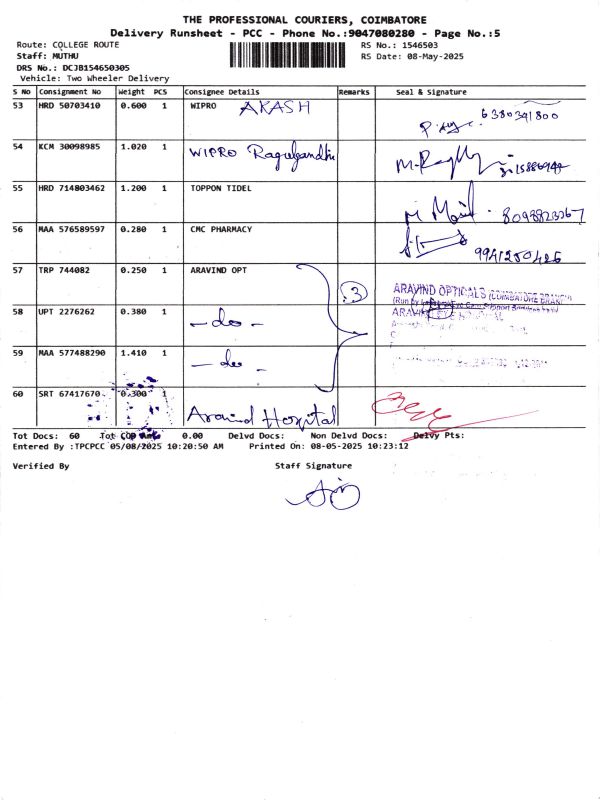 THE PROFESSIONAL COURIERS, COIMBATORE
Delivery Runsheet - PCC - Phone No.:9047080280 - Page No.:5
Route: COLLEGE ROUTE RS No.: 1546503
Staff: MUTHU RS Date: 08-May-2025
DRS No.: DCJB154650305
Vehicle: Two Wheeler Delivery
S No Consignment No Weight PCS Consignee Details Remarks Seal & Signature
53 HRD 50703410 0.600 1 WIPRO AKASH 6380391800
54 KCM 30098985 1.020 1 WIPRO Ragulgandhi
55 HRD 714803462 1.200 1 TOPPON TIDEL
56 MAA 576589597 0.280 1 CMC PHARMACY
57 TRP 744082 0.250 1 ARAVIND OPT 3 ARAVIND OPTICALS (COIMBATORE BRANCH)
58 UPT 2276262 0.380 1 - do -
59 MAA 577488290 1.410 1 - do -
60 SRT 67417670 0.300 1 Aravind Hospital
Tot Docs: 60 Tot COD Amt: 0.00 Delvd Docs: Non Delvd Docs: Delvy Pts:
Entered By :TPCPCC 05/08/2025 10:20:50 AM Printed On: 08-05-2025 10:23:12
Verified By Staff Signature